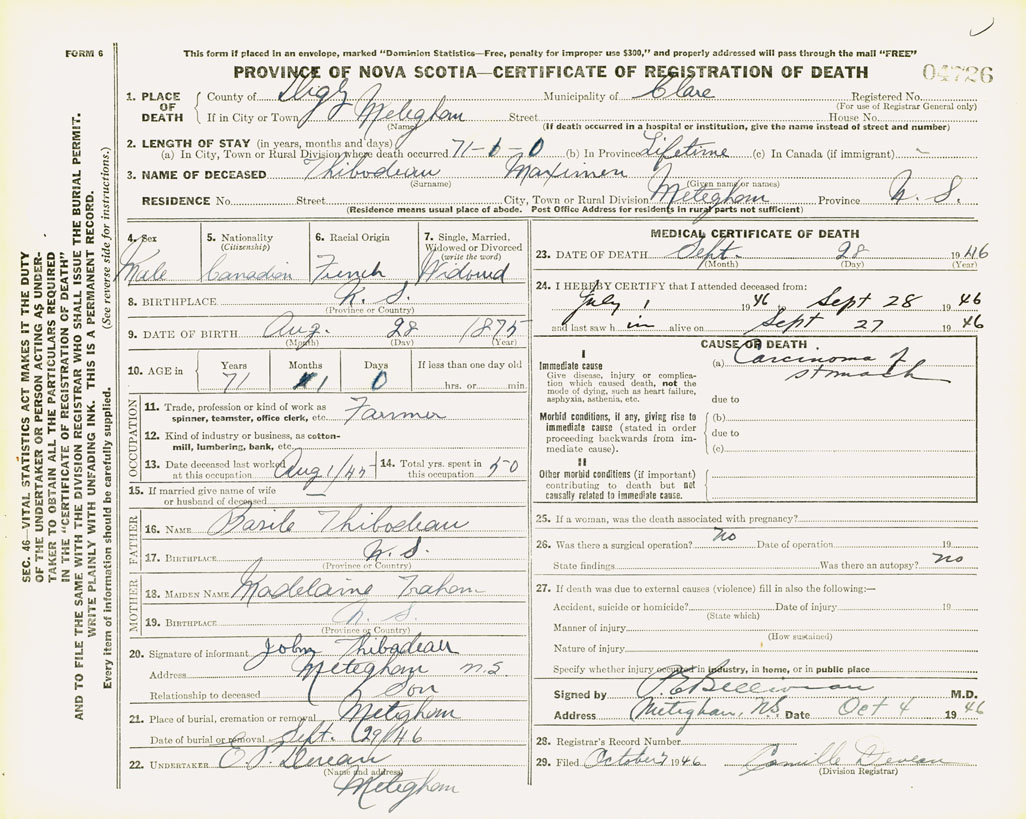 FORM 6
This form if placed in an envelope, marked "Dominion Statistics—Free, penalty for improper use $300," and properly addressed will pass through the mail "FREE"
PROVINCE OF NOVA SCOTIA—CERTIFICATE OF REGISTRATION OF DEATH
04726
SEC. 46—VITAL STATISTICS ACT MAKES IT THE DUTY
OF THE UNDERTAKER OR PERSON ACTING AS UNDER-
TAKER TO OBTAIN ALL THE PARTICULARS REQUIRED
IN THE "CERTIFICATE OF REGISTRATION OF DEATH"
AND TO FILE THE SAME WITH THE DIVISION REGISTRAR WHO SHALL ISSUE THE BURIAL PERMIT.
WRITE PLAINLY WITH UNFADING INK. THIS IS A PERMANENT RECORD.
Every item of information should be carefully supplied. (See reverse side for instructions.)
1. PLACE OF DEATH
County of Digby Municipality of Clare Registered No.
(For use of Registrar General only)
If in City or Town Meteghan Street House No.
(Name) (If death occurred in a hospital or institution, give the name instead of street and number)
2. LENGTH OF STAY (in years, months and days)
(a) In City, Town or Rural Division where death occurred 71-0-0 (b) In Province Lifetime (c) In Canada (if immigrant) -
3. NAME OF DECEASED Thibodeau Maximen
(Surname) (Given name or names)
RESIDENCE No. Street City, Town or Rural Division Meteghan Province N. S.
(Residence means usual place of abode. Post Office Address for residents in rural parts not sufficient)
4. Sex
Male
5. Nationality
(Citizenship)
Canadian
6. Racial Origin
French
7. Single, Married,
Widowed or Divorced
(write the word)
Widowed
8. BIRTHPLACE N. S.
(Province or Country)
9. DATE OF BIRTH Aug. 28 1875
(Month) (Day) (Year)
10. AGE in
Years Months Days If less than one day old
71 1 0 hrs. or min.
OCCUPATION
11. Trade, profession or kind of work as
spinner, teamster, office clerk, etc. Farmer
12. Kind of industry or business, as cotton-
mill, lumbering, bank, etc.
13. Date deceased last worked
at this occupation Aug 1/45
14. Total yrs. spent in
this occupation 50
15. If married give name of wife
or husband of deceased —
FATHER
16. NAME Basile Thibodeau
17. BIRTHPLACE N. S.
(Province or Country)
MOTHER
18. MAIDEN NAME Madelaine Trahan
19. BIRTHPLACE N. S.
(Province or Country)
20. Signature of informant John Thibodeau
Address Meteghan N.S.
Relationship to deceased Son
21. Place of burial, cremation or removal Meteghan
Date of burial or removal Sept. 29/46
22. UNDERTAKER E. P. Deveau
(Name and address)
Meteghan
MEDICAL CERTIFICATE OF DEATH
23. DATE OF DEATH Sept. 28 1946
(Month) (Day) (Year)
24. I HEREBY CERTIFY that I attended deceased from:
July 1 1946 to Sept 28 1946
and last saw h im alive on Sept 27 1946
CAUSE OF DEATH
I
Immediate cause
Give disease, injury or complica-
tion which caused death, not the
mode of dying, such as heart failure,
asphyxia, asthenia, etc.
(a) Carcinoma of
stomach
due to
Morbid conditions, if any, giving rise to
immediate cause (stated in order
proceeding backwards from im-
mediate cause).
(b)
due to
(c)
II
Other morbid conditions (if important)
contributing to death but not
causally related to immediate cause.
25. If a woman, was the death associated with pregnancy?
26. Was there a surgical operation? no Date of operation 19
State findings Was there an autopsy? no
27. If death was due to external causes (violence) fill in also the following:—
Accident, suicide or homicide? Date of injury 19
(State which)
Manner of injury
(How sustained)
Nature of injury
Specify whether injury occurred in industry, in home, or in public place
Signed by P. E. Belliveau M.D.
Address Meteghan, N.S. Date Oct 4 1946
28. Registrar's Record Number
29. Filed October 7 1946 Camille Deveau
(Division Registrar)